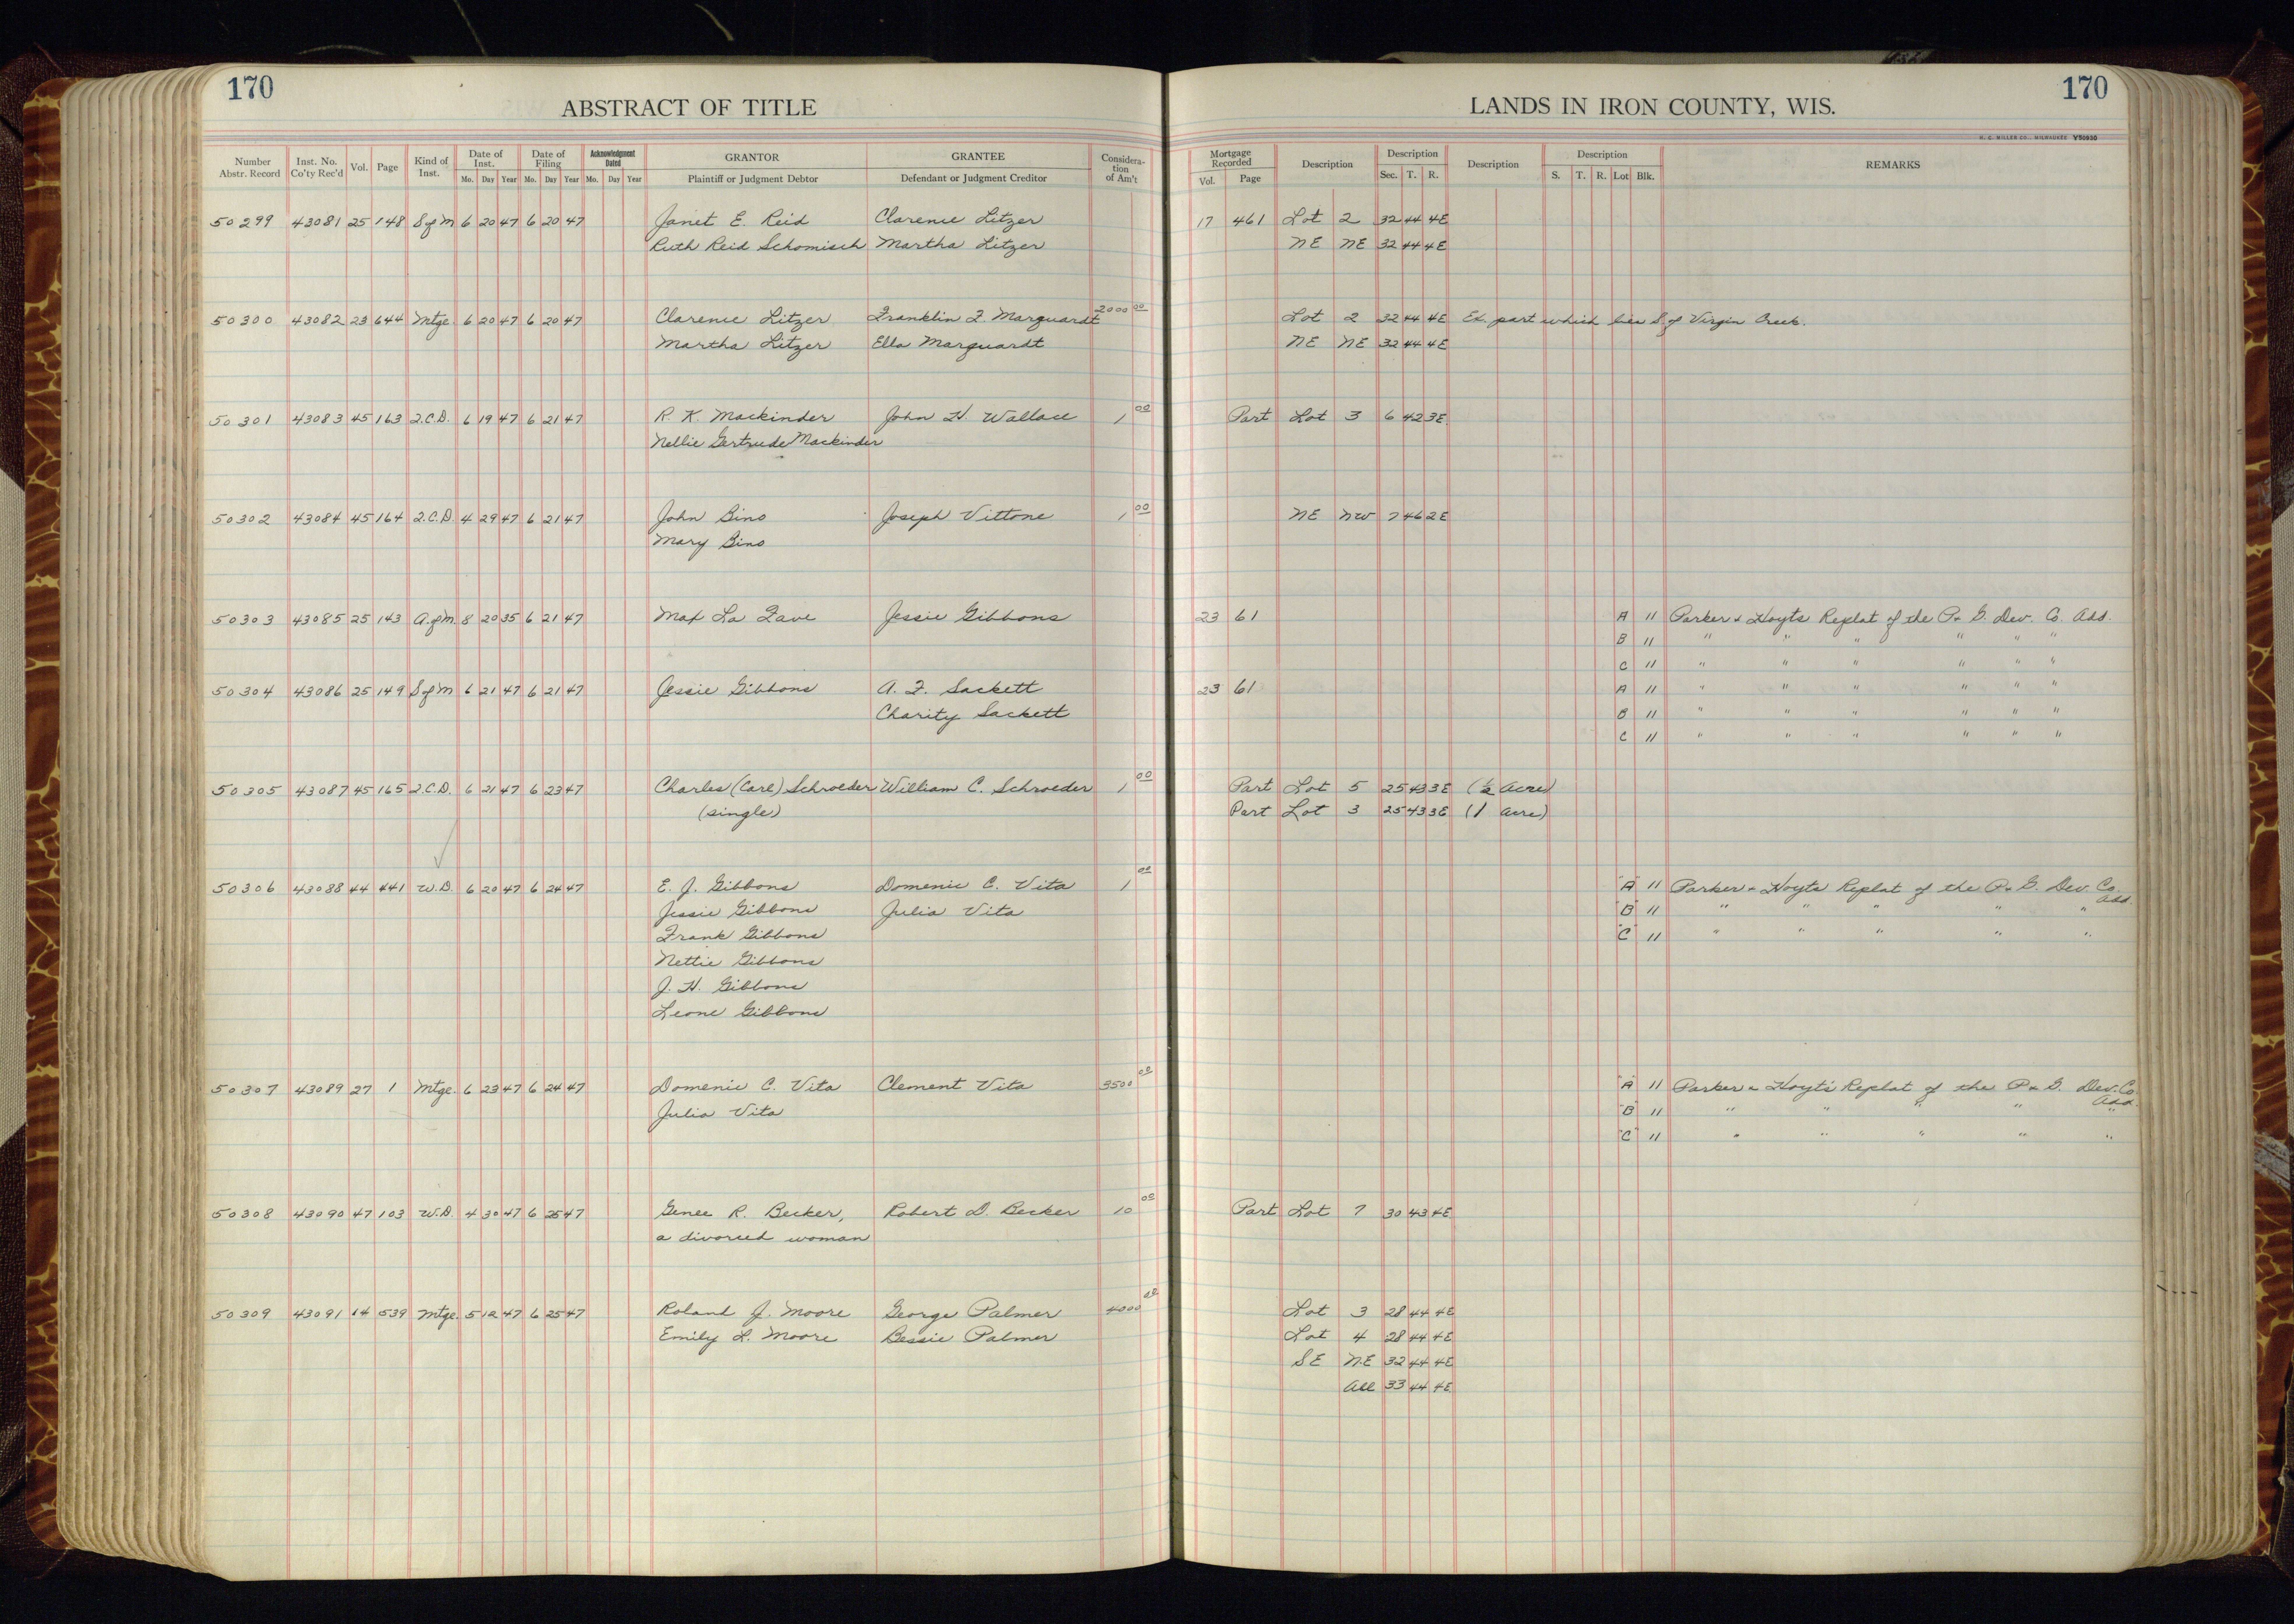 170
ABSTRACT OF TITLE
LANDS IN IRON COUNTY, WIS.
170
H. C. MILLER CO., MILWAUKEE Y50930
Number Abstr. Record Inst. No. Co'ty Rec'd Vol. Page Kind of Inst. Date of Inst. Mo. Day Year Date of Filing Mo. Day Year Acknowledgment Dated Mo. Day Year GRANTOR Plaintiff or Judgment Debtor GRANTEE Defendant or Judgment Creditor Consideration of Am't Mortgage Recorded Vol. Page Description Description Sec. T. R. Description Description S. T. R. Lot Blk. REMARKS
50299 43081 25 148 S of M 6 20 47 6 20 47 Janet E. Reid Clarence Litzer 17 461 Lot 2 32 44 4E
Ruth Reid Schomisch Martha Litzer NE NE 32 44 4E
50300 43082 23 644 Mtge. 6 20 47 6 20 47 Clarence Litzer Franklin F. Marquardt 2000 00 Lot 2 32 44 4E Ex. part which lies S. of Virgin Creek.
Martha Litzer Ella Marquardt NE NE 32 44 4E
50301 43083 45 163 Q.C.D. 6 19 47 6 21 47 R. K. Mackinder John H. Wallace 1 00 Part Lot 3 6 42 3E
Nellie Gertrude Mackinder
50302 43084 45 164 Q.C.D. 4 29 47 6 21 47 John Bino Joseph Vittone 1 00 NE NW 7 46 2E
Mary Bino
50303 43085 25 143 A. of M. 8 20 35 6 21 47 Max La Fave Jessie Gibbons 23 61 A 11 Parker & Hoyts Replat of the P. & G. Dev. Co. Add.
B 11 " " " " " "
C 11 " " " " " "
50304 43086 25 149 S of M 6 21 47 6 21 47 Jessie Gibbons A. F. Sackett 23 61 A 11 " " " " " "
Charity Sackett B 11 " " " " " "
C 11 " " " " " "
50305 43087 45 165 Q.C.D. 6 21 47 6 23 47 Charles (Carl) Schroeder William C. Schroeder 1 00 Part Lot 5 25 43 3E (½ Acre)
(single) Part Lot 3 25 43 3E (1 Acre)
50306 43088 44 441 W.D. 6 20 47 6 24 47 E. J. Gibbons Domenic C. Vita 1 00 "A" 11 Parker & Hoyts Replat of the P. & G. Dev. Co. Add.
Jessie Gibbons Julia Vita "B" 11 " " " " "
Frank Gibbons "C" 11 " " " " "
Nettie Gibbons
J. H. Gibbons
Leone Gibbons
50307 43089 27 1 Mtge. 6 23 47 6 24 47 Domenic C. Vita Clement Vita 3500 00 "A" 11 Parker & Hoyt's Replat of the P. & G. Dev. Co. Add.
Julia Vita "B" 11 " " " " "
"C" 11 " " " " "
50308 43090 47 103 W.D. 4 30 47 6 25 47 Genee R. Becker, Robert D. Becker 10 00 Part Lot 7 30 43 4E
a divorced woman
50309 43091 14 539 Mtge. 5 12 47 6 25 47 Roland J. Moore George Palmer 4000 00 Lot 3 28 44 4E
Emily L. Moore Bessie Palmer Lot 4 28 44 4E
SE NE 32 44 4E
All 33 44 4E